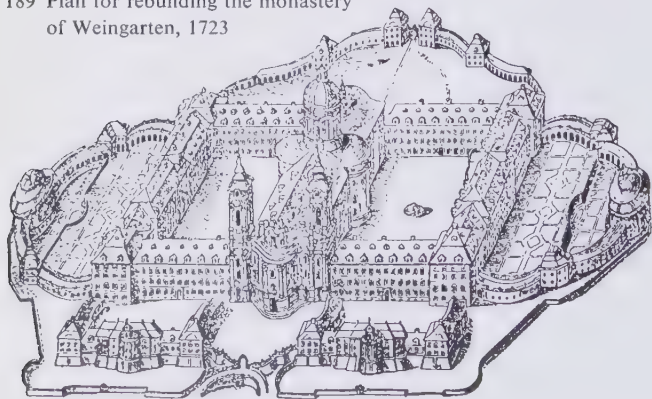 189 Plan for rebuilding the monastery
of Weingarten, 1723